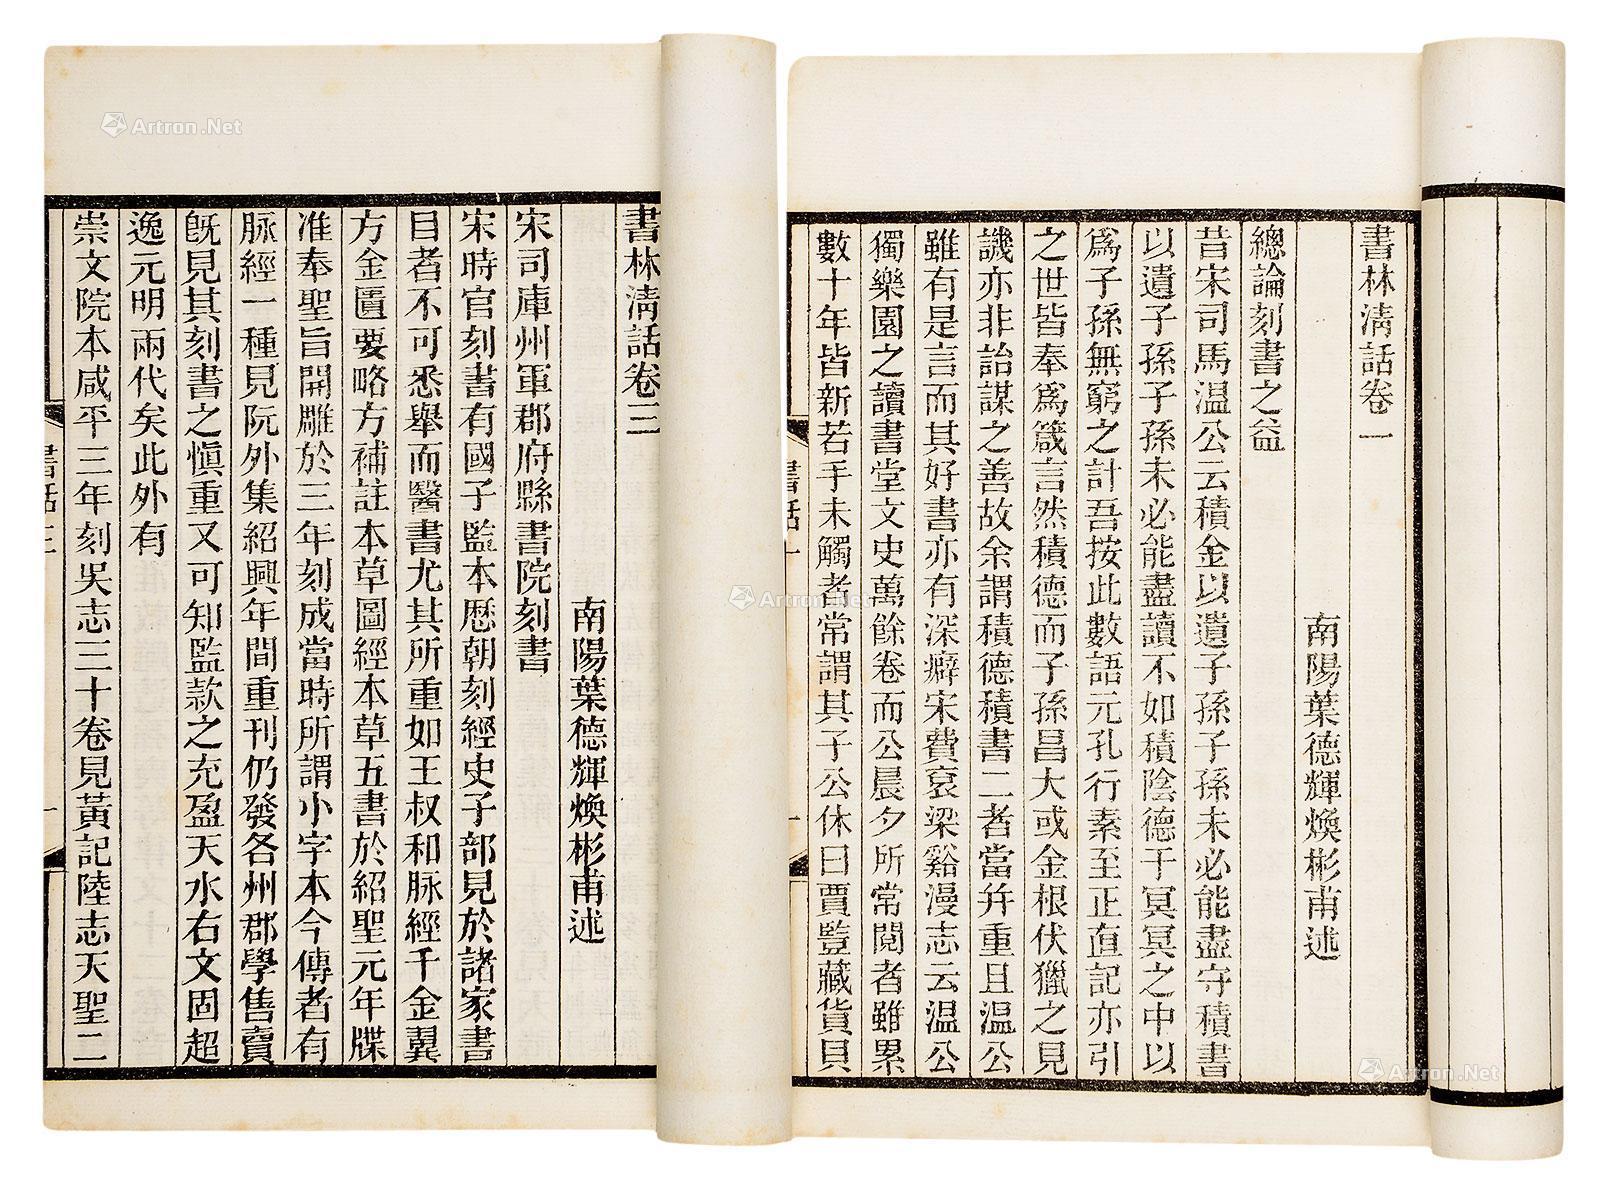 書林清話卷一
南陽葉德輝煥彬甫述
總論刻書之益
昔宋司馬温公云積金以遺子孫子孫未必能盡守積書
以遺子孫子孫未必能盡讀不如積陰德于冥冥之中以
爲子孫無窮之計吾按此數語元孔行素至正直記亦引
之世皆奉爲箴言然積德而子孫昌大或金根伏獵之見
譏亦非詒謀之善故余謂積德積書二者當幷重且温公
雖有是言而其好書亦有深癖宋費衮梁谿漫志云温公
獨樂園之讀書堂文史萬餘卷而公晨夕所常閱者雖累
數十年皆新若手未觸者常謂其子公休曰賈豎藏貨貝
書話一
一
書林清話卷三
南陽葉德輝煥彬甫述
宋司庫州軍郡府縣書院刻書
宋時官刻書有國子監本歷朝刻經史子部見於諸家書
目者不可悉舉而醫書尤其所重如王叔和脉經千金翼
方金匱要略方補註本草圖經本草五書於紹聖元年牒
准奉聖旨開雕於三年刻成當時所謂小字本今傳者有
脉經一種見阮外集紹興年間重刊仍發各州郡學售賣
既見其刻書之愼重又可知監款之充盈天水右文固超
逸元明兩代矣此外有
崇文院本咸平三年刻吳志三十卷見黃記陸志天聖二
書話三
一
Artron.Net
Artron.Net
Artron.Net